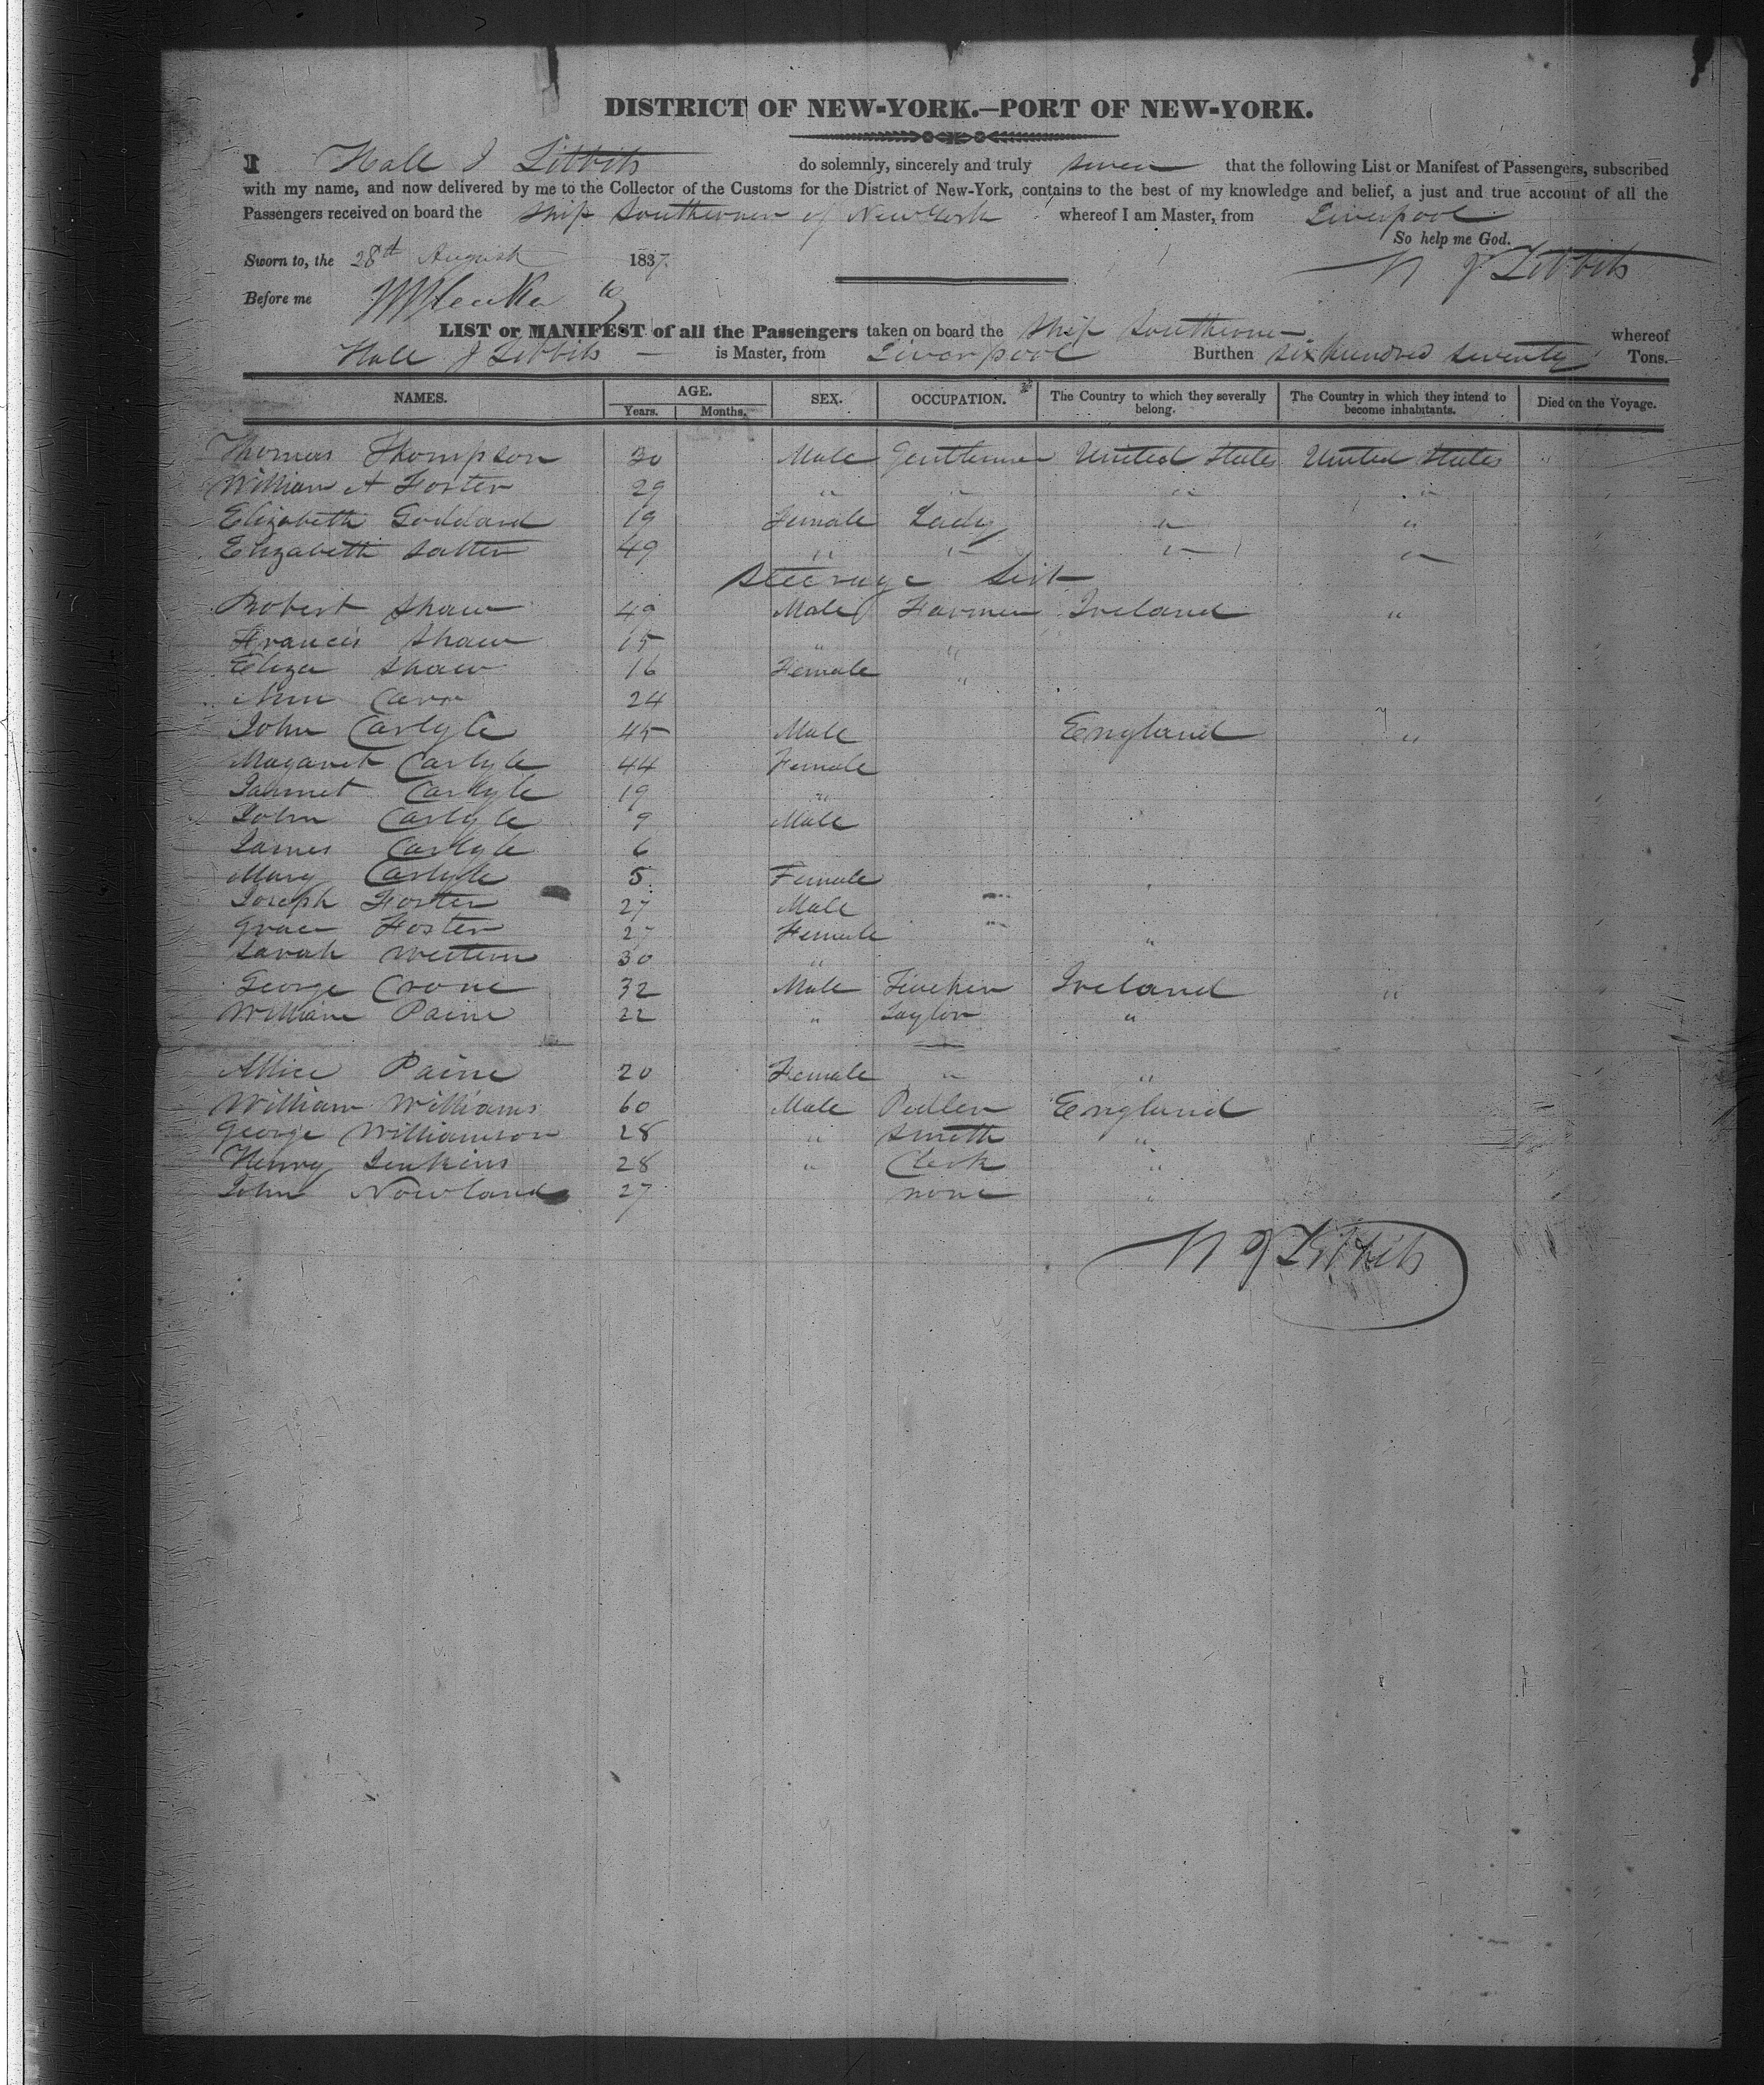 DISTRICT OF NEW-YORK.—PORT OF NEW-YORK.
I Hall J Libbits do solemnly, sincerely and truly swear that the following List or Manifest of Passengers, subscribed
with my name, and now delivered by me to the Collector of the Customs for the District of New-York, contains to the best of my knowledge and belief, a just and true account of all the
Passengers received on board the Ship Southerner of New York whereof I am Master, from Liverpool
So help me God.
Sworn to, the 28th August 1837. H J Libbits
Before me
LIST or MANIFEST of all the Passengers taken on board the Ship Southerner whereof
Hall J Libbits is Master, from Liverpool Burthen six hundred seventy Tons.
NAMES. AGE. SEX. OCCUPATION. The Country to which they severally belong. The Country in which they intend to become inhabitants. Died on the Voyage.
Years. Months.
Thomas Thompson 30 Male Gentleman United States United States
William A Foster 29 " " " "
Elizabeth Goddard 19 Female Lady " "
Elizabeth Salter 49 " " " "
Steerage List
Robert Shaw 49 Male Farmer Ireland "
Francis Shaw 15 " "
Eliza Shaw 16 Female "
Ann 24
John Carlyle 45 Male England "
Magaret Carlyle 44 Female
Jannet Carlyle 19 "
John Carlyle 9 Male
James Carlyle 6
Mary Carlyle 5 Female
Joseph Foster 27 Male
Grace Foster 27 Female "
Sarah Western 30 "
George Crone 32 Male Ireland "
William Paine 22 " Taylor "
Allice Paine 20 Female " "
William Williams 60 Male Pedler England
George Williamson 28 " Smith "
Henry Jenkins 28 " Clerk "
John Nowland 27 none "
H J Libbits